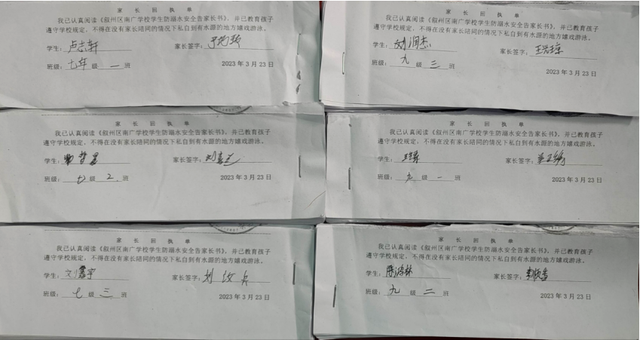 家长回执单
我已认真阅读《叙州区南广学校学生防溺水安全告家长书》，并已教育孩子
遵守学校规定，不得在没有家长陪同的情况下私自到有水源的地方嬉戏游泳。
学生： 家长签字：
班级：七年级一班
2023年3月23日
家长回执单
我已认真阅读《叙州区南广学校学生防溺水安全告家长书》，并已教育孩子
遵守学校规定，不得在没有家长陪同的情况下私自到有水源的地方嬉戏游泳。
学生： 家长签字：
班级：九级三班
2023年3月23日
家长回执单
我已认真阅读《叙州区南广学校学生防溺水安全告家长书》，并已教育孩子
遵守学校规定，不得在没有家长陪同的情况下私自到有水源的地方嬉戏游泳。
学生： 家长签字：
班级：七级2班
2023年3月23日
家长回执单
我已认真阅读《叙州区南广学校学生防溺水安全告家长书》，并已教育孩子
遵守学校规定，不得在没有家长陪同的情况下私自到有水源的地方嬉戏游泳。
学生： 家长签字：
班级：九级一班
2023年3月23日
家长回执单
我已认真阅读《叙州区南广学校学生防溺水安全告家长书》，并已教育孩子
遵守学校规定，不得在没有家长陪同的情况下私自到有水源的地方嬉戏游泳。
学生： 家长签字：
班级：七级三班
2023年3月23日
家长回执单
我已认真阅读《叙州区南广学校学生防溺水安全告家长书》，并已教育孩子
遵守学校规定，不得在没有家长陪同的情况下私自到有水源的地方嬉戏游泳。
学生： 家长签字：
班级：九级二班
2023年3月23日